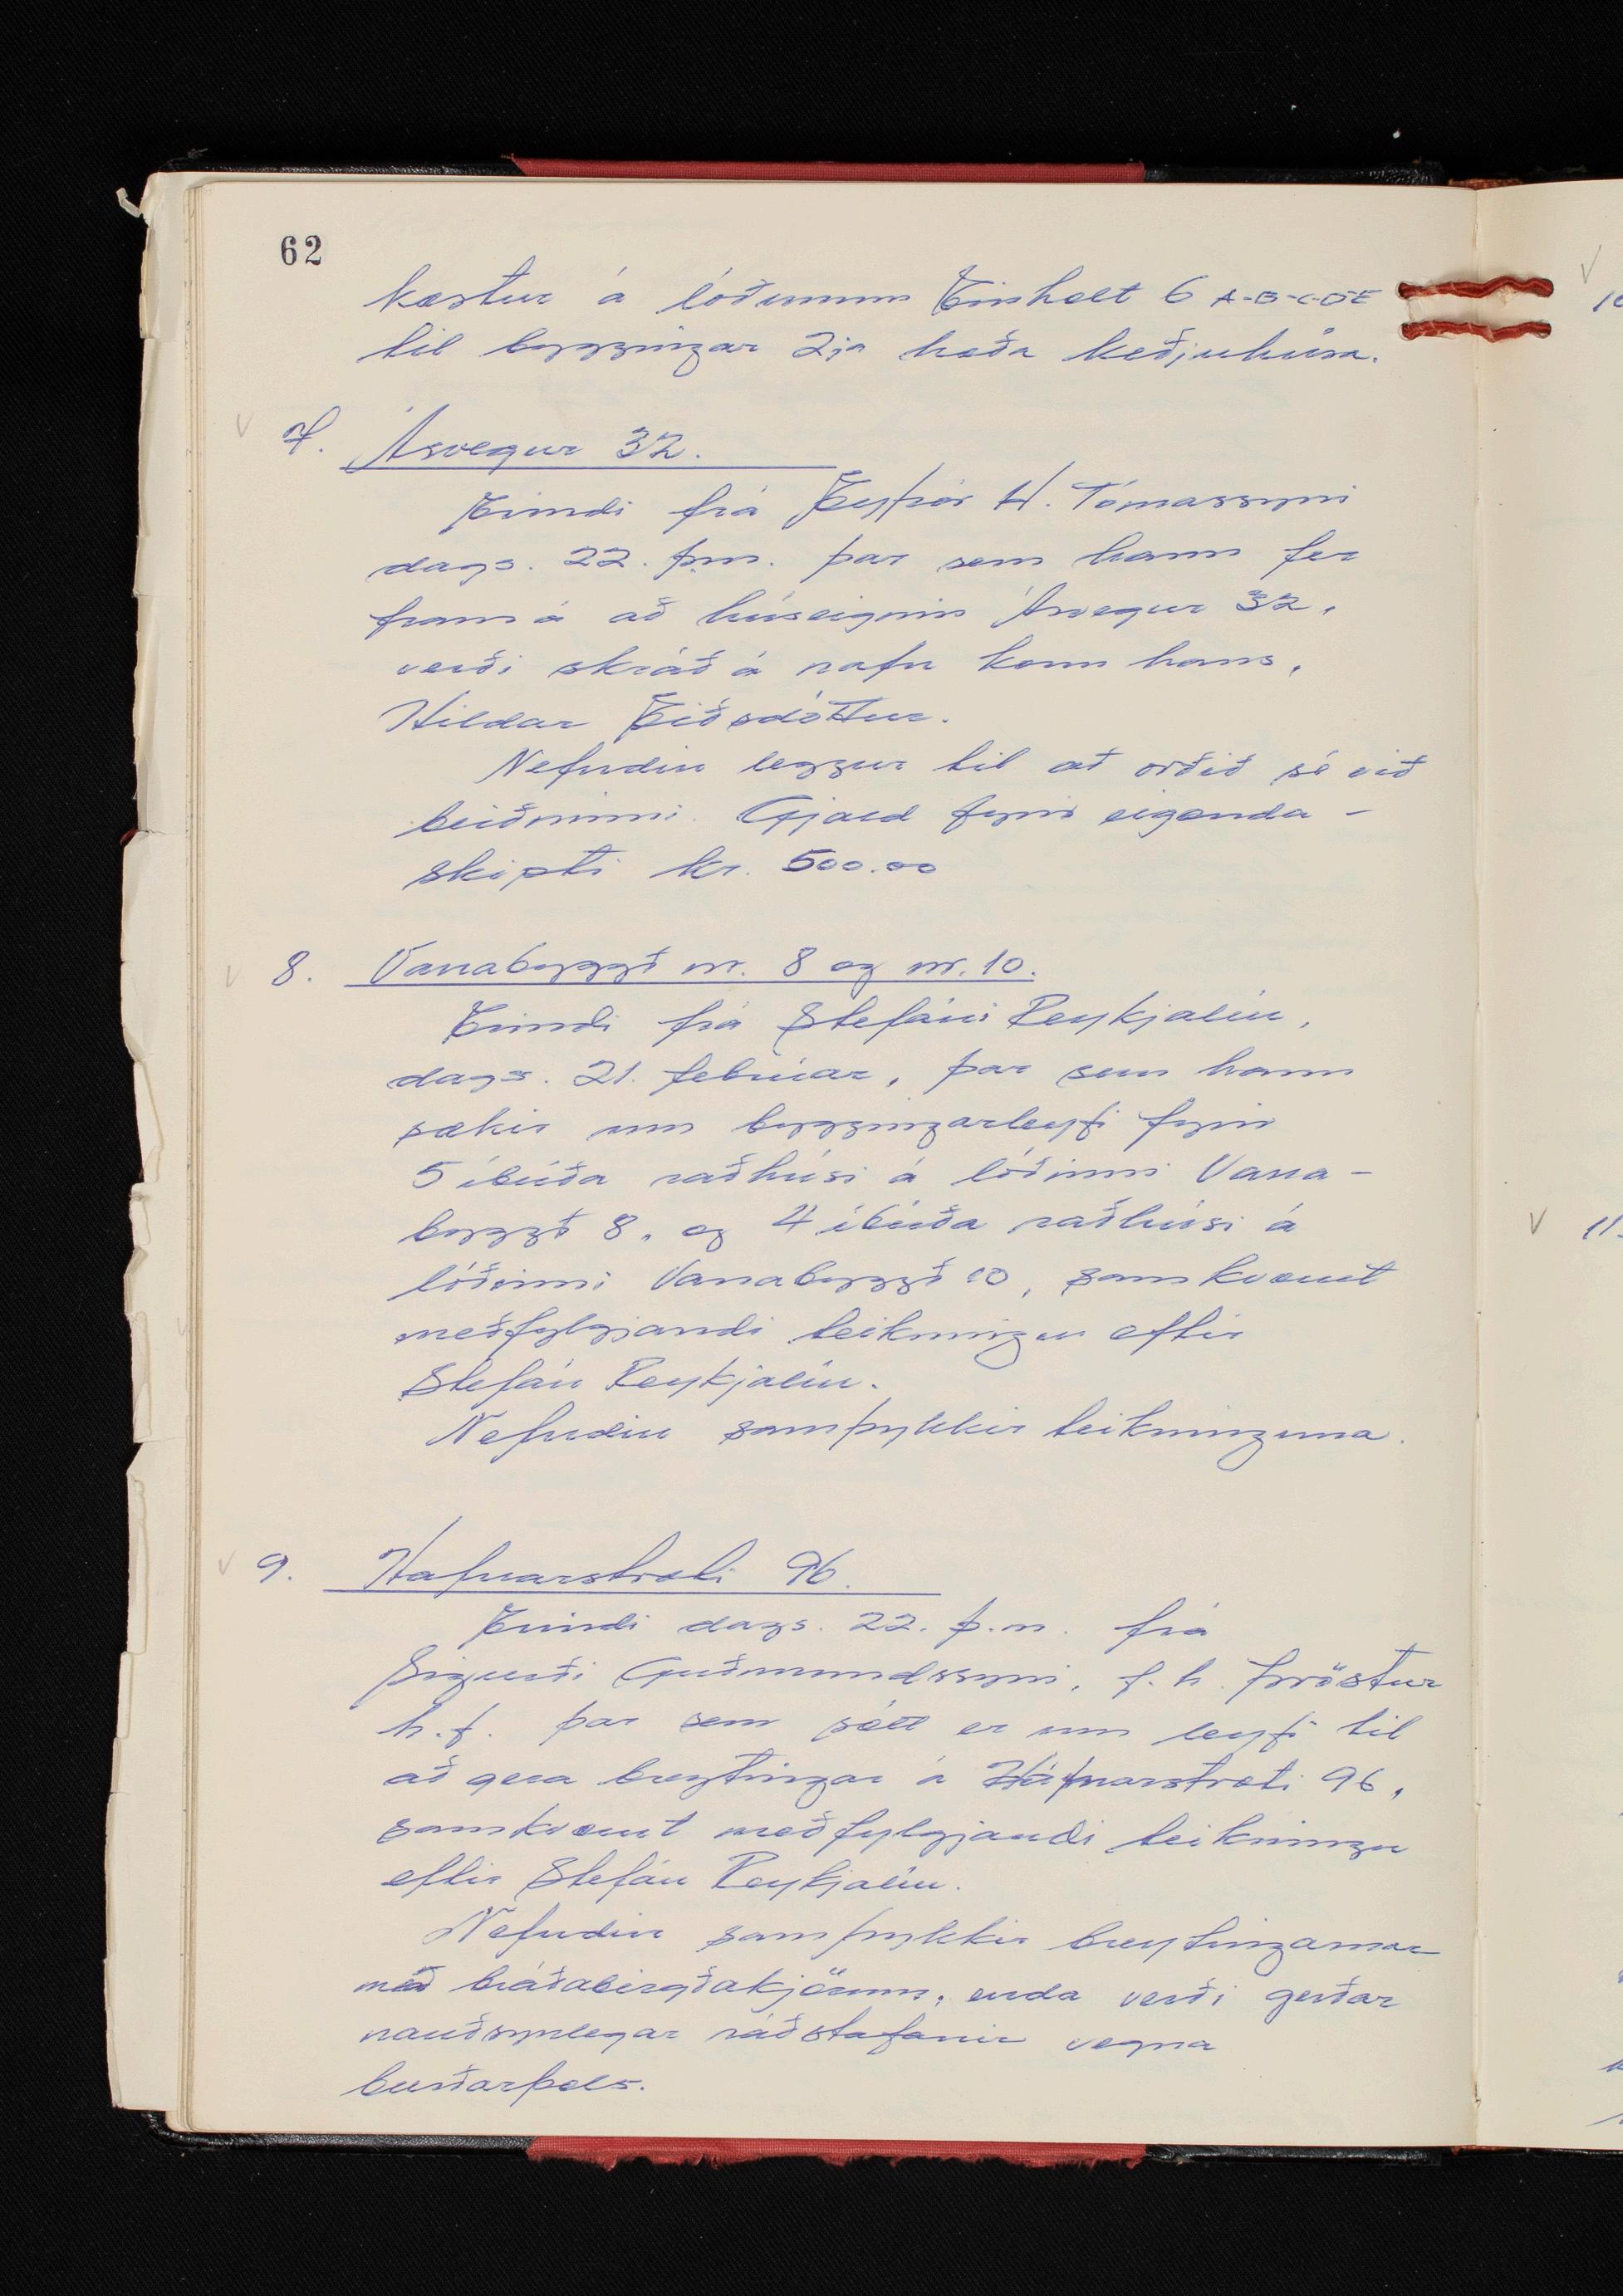 62
kostur á lóðunum Einholt 6 A-B-C-D-E
til byggingar 2ja hæða keðjuhúsa.
7. Ásvegur 32.
Erindi frá Eyþór H. Tómassyni
dags. 22. þ.m. þar sem hann fer
fram á að húseignin Ásvegur 32,
verði skráð á nafn konu hans,
Hildar Eiðsdóttur.
Nefndin leggur til að orðið sé við
beiðninni. Gjald fyrir eigenda-
skipti kr. 500.00
8. Vanabyggð nr. 8 og nr. 10.
Erindi frá Stefáni Reykjalín,
dags. 21. febrúar, þar sem hann
sækir um byggingarleyfi fyrir
5 íbúða raðhúsi á lóðinni Vana-
byggð 8, og 4 íbúða raðhúsi á
lóðinni Vanabyggð 10, samkvæmt
meðfylgjandi teikningu eftir
Stefán Reykjalín.
Nefndin samþykkir teikninguna.
9. Hafnarstræti 96.
Erindi dags. 22. þ.m. frá
Sigurði Guðmundssyni, f.h. Þröstur
h.f. þar sem sótt er um leyfi til
að gera breytingar á Hafnarstræti 96,
samkvæmt meðfylgjandi teikningu
eftir Stefán Reykjalín.
Nefndin samþykkir breytingarnar
með bráðabirgðakjörum, enda verði gerðar
nauðsynlegar ráðstafanir vegna
burðarþols.
11.